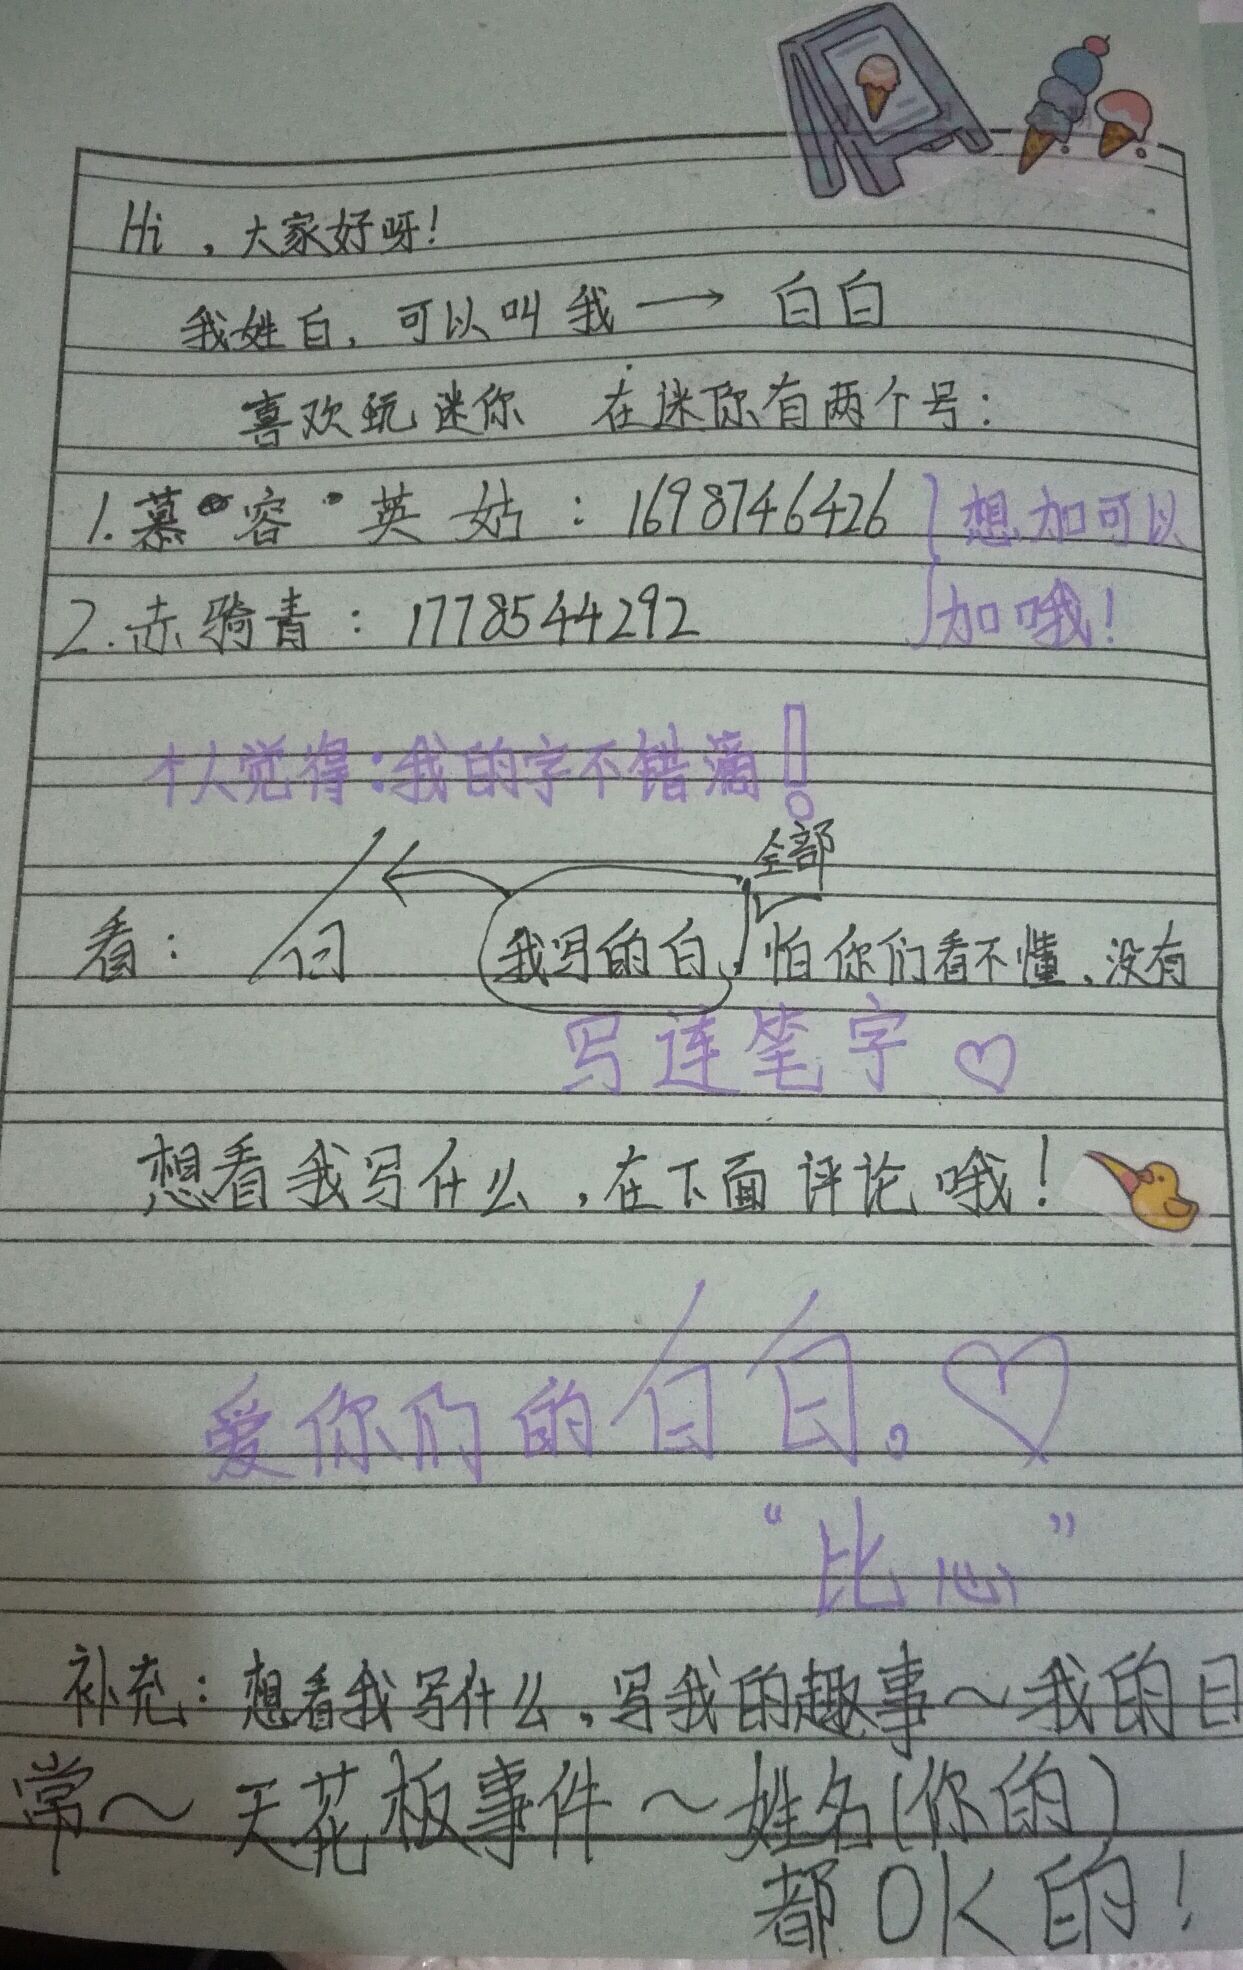 Hi，大家好呀！
我姓白，可以叫我→白白
喜欢玩迷你 在迷你有两个号：
1.慕·容·英姑：1698746426 }想加可以
2.赤骑青：1778544292 加哦！
个人觉得：我的字不错滴！
全部
看：白 我写的白、怕你们看不懂、没有
写连笔字♡
想看我写什么，在下面评论哦！
爱你们的白白。♡
“比心”
补充：想看我写什么，写我的趣事～我的日
常～天花板事件～姓名（你的）
都OK的！